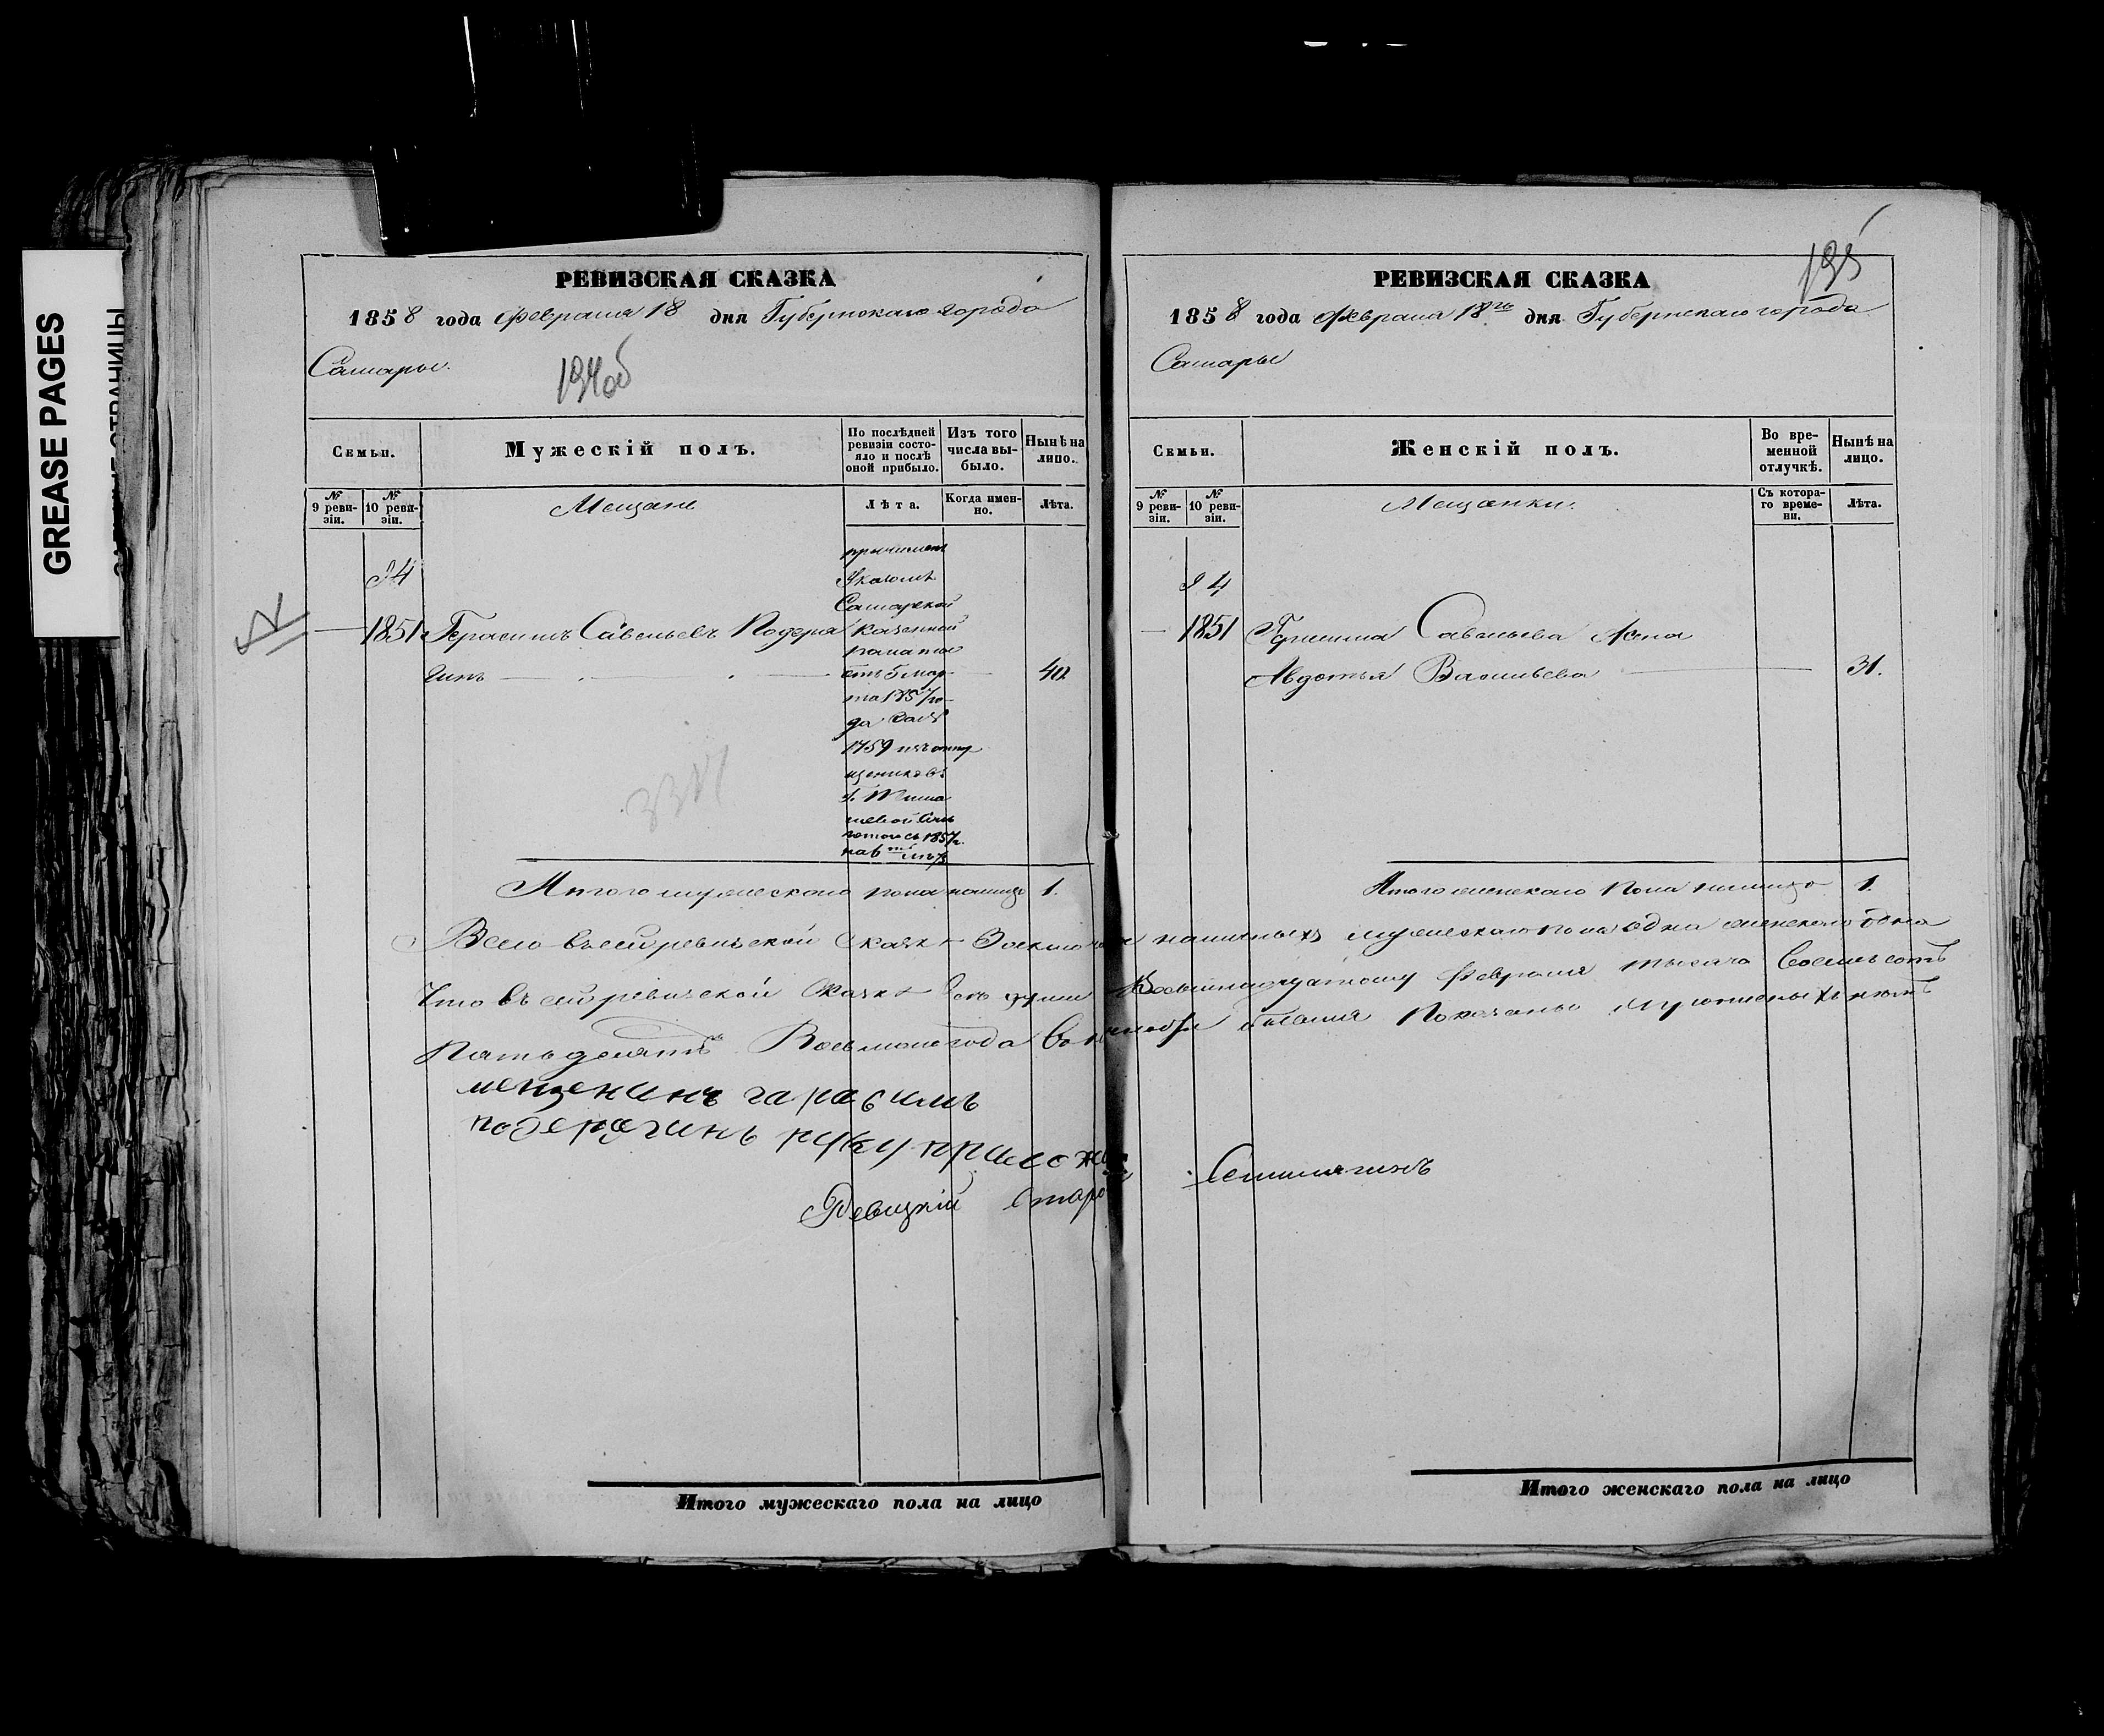 GREASE PAGES
РЕВИЗСКАЯ СКАЗКА
1858 года Февраля 18 дня Губернскаго города
Самары.
194об
Семьи.
Мужескiй полъ.
По послѣдней ревизiи состояло и послѣ оной прибыло.
Изъ того числа выбыло.
Нынѣ на лицо.
№ 9 ревизiи.
№ 10 ревизiи.
Мещане
Лѣта.
Когда именно.
Лѣта.
94
1851 Герасимъ Савельевъ Подеря
гинъ 40
причислен
Указомъ
Самарской
казенной
палаты
отъ 5 мар
та 1857 го
да за №
1759 изъ отпу
щениковъ
Итого мужескаго пола налицо 1.
РЕВИЗСКАЯ СКАЗКА
195
1858 года Февраля 18го дня Губернскаго города
Самары
Семьи.
Женскiй полъ.
Во временной отлучкѣ.
Нынѣ на лицо.
№ 9 ревизiи.
№ 10 ревизiи.
Мещанки.
Съ котораго времени.
Лѣта.
94
1851 Герасима Савельева жена
Авдотья Васильева 31.
Итого женскаго пола налицо 1.
Всего въ сей ревизской сказке наличныхъ мужескаго пола одна женскаго одна
Что въ сей ревизской сказке все души Восьмнадцатому Февраля тысяча восемьсотъ
Пятьдесятъ Восьмаго года показаны
мещенинъ гарасимъ
подерягинъ руку приложилъ
Ревизкiй Старо
Итого мужескаго пола на лицо
Итого женскаго пола на лицо